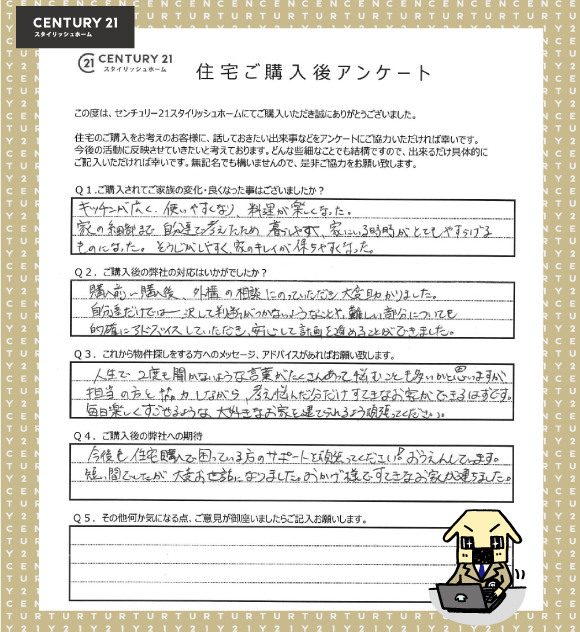 CENTURY 21
スタイリッシュホーム
CENTURY 21
スタイリッシュホーム
住宅ご購入後アンケート
この度は、センチュリー21スタイリッシュホームにてご購入いただき誠にありがとうございました。
住宅のご購入をお考えのお客様に、話しておきたい出来事などをアンケートにご協力いただければ幸いです。
今後の活動に反映させていきたいと考えております。どんな些細なことでも結構ですので、出来るだけ具体的に
ご記入いただければ幸いです。無記名でも構いませんので、是非ご協力をお願い致します。
Q1.ご購入されてご家族の変化・良くなった事はございましたか?
キッチンが広く、使いやすくなり、料理が楽しくなった。
家の細部まで自分達で考えたため、暮らしやすく、家にいる時間がとてもやすらげる
ものになった。そうじがしやすく、家のキレイが保ちやすくなった。
Q2. ご購入後の弊社の対応はいかがでしたか?
購入前〜購入後、外構の相談にのっていただき大変助かりました。
自分達だけでは決して判断がつかないようなことや、難しい部分についても
的確にアドバイスしていただき、安心して計画を進めることができました。
Q3. これから物件探しをする方へのメッセージ、アドバイスがあればお願い致します。
人生で2度も聞かないような言葉がたくさんあって悩むことも多いかと思いますが
担当の方と協力しながら、考え悩んだ分だけすてきなお家ができるはずです。
毎日楽しくすごせるような、大好きなお家を建てられるよう頑張ってください。
Q4. ご購入後の弊社への期待
今後も住宅購入で困っている方のサポートを頑張ってください!おうえんしています。
短い間でしたが大変お世話になりました。おかげ様ですてきなお家が建ちました。
Q5. その他何か気になる点、ご意見が御座いましたらご記入お願いします。